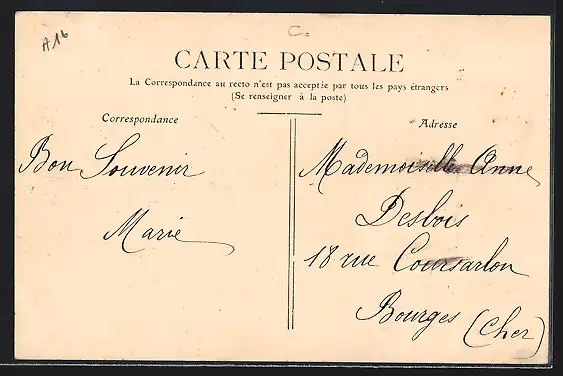 A16
CARTE POSTALE
La Correspondance au recto n'est pas acceptée par tous les pays étrangers
(Se renseigner à la poste)
Correspondance
Bon Souvenir
Marie
Adresse
Mademoiselle Anne
Desbois
18 rue Coursarlon
Bourges (Cher)